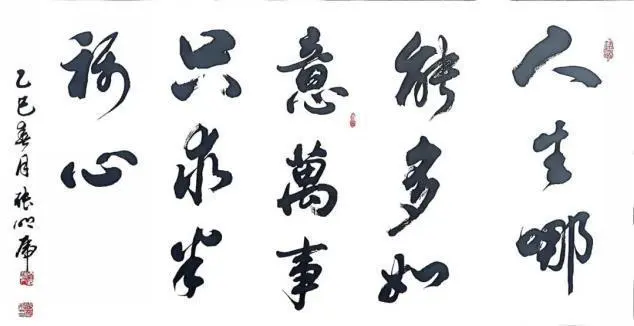 人生哪
能多如
意萬事
只求半
称心
乙巳春月张